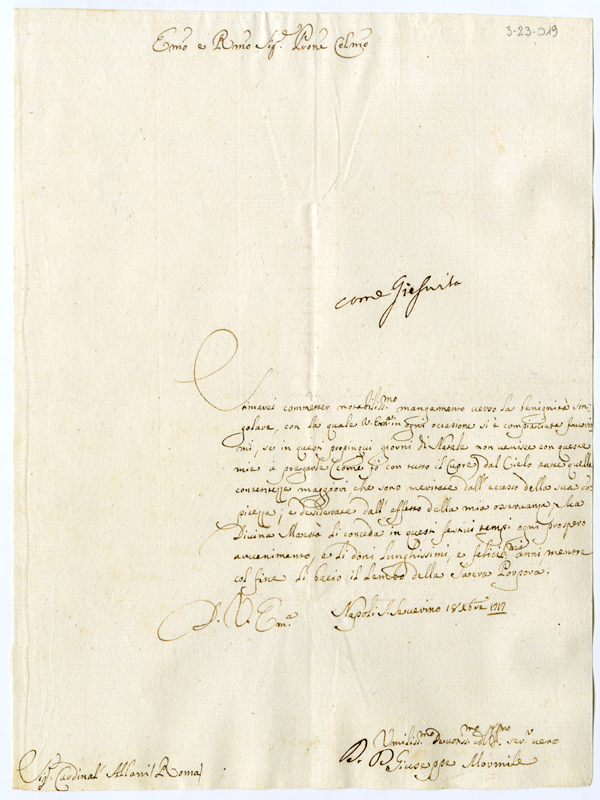 3-23-019
Emo e Rmo Sig.r Prone Colmo
come Giesuita
Stimarei commetter notabiliss.mo mancamento verso la benignità sin=
golare, con la quale V. Em.a in ogni occasione si è compiaciuta favorir
mi, se in questi propinqui giorni di Natale non venisse con queste
mie à pregarle (come fò con tutto il Cuore) dal Cielo tutte quelle
contentezze maggiori che sono meritate dall' eccesso della sua
pietà; e desiderate dall' effetto della mia osservanza. Sua
Divina Maestà Li conceda in questi festivi tempi ogni prospero
avvenimento, e Li doni lunghissimi, e felicis.mi anni mentre
col fine Li bacio il Lembo della Sacra Porpora.
D. V. Em.a Napoli S. Severino 18 Xbre 1717
Umiliss.mo Devotiss.mo ser.e vero
D. Giuseppe Mormile
Sig.r Cardinal Albani Roma